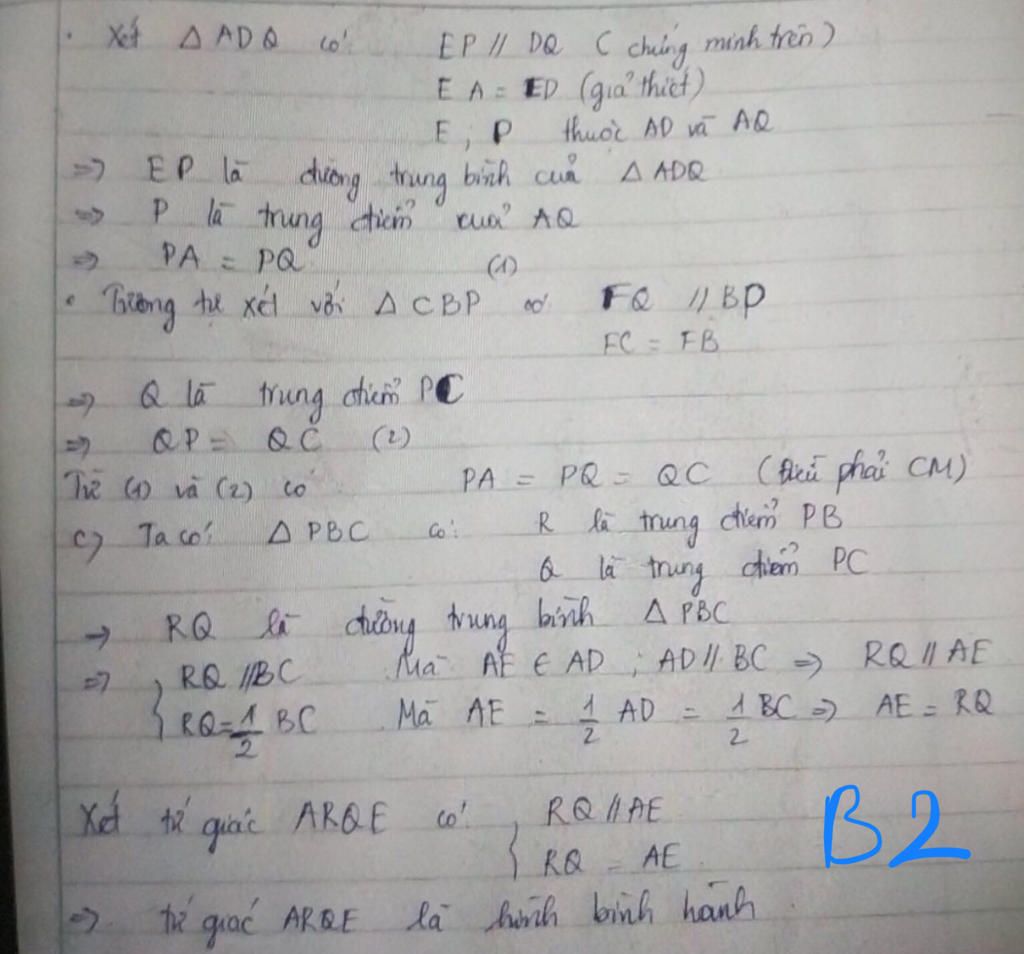 . Xét Δ ADQ có: EP // DQ (chứng minh trên)
EA = ED (giả thiết)
E, P thuộc AD và AQ
=> EP là đường trung bình của Δ ADQ
=> P là trung điểm của AQ
=> PA = PQ (1)
• Tương tự xét với Δ CBP có FQ // BP
FC = FB
=> Q là trung điểm PC
=> QP = QC (2)
Từ (1) và (2) có PA = PQ = QC (Điều phải CM)
c) Ta có: Δ PBC có: R là trung điểm PB
Q là trung điểm PC
→ RQ là đường trung bình Δ PBC
=> { RQ // BC Mà AE ∈ AD ; AD // BC => RQ // AE
RQ = 1/2 BC Mà AE = 1/2 AD = 1/2 BC => AE = RQ
Xét tứ giác ARQE có { RQ // AE
RQ = AE
B2
=> tứ giác ARQE là hình bình hành